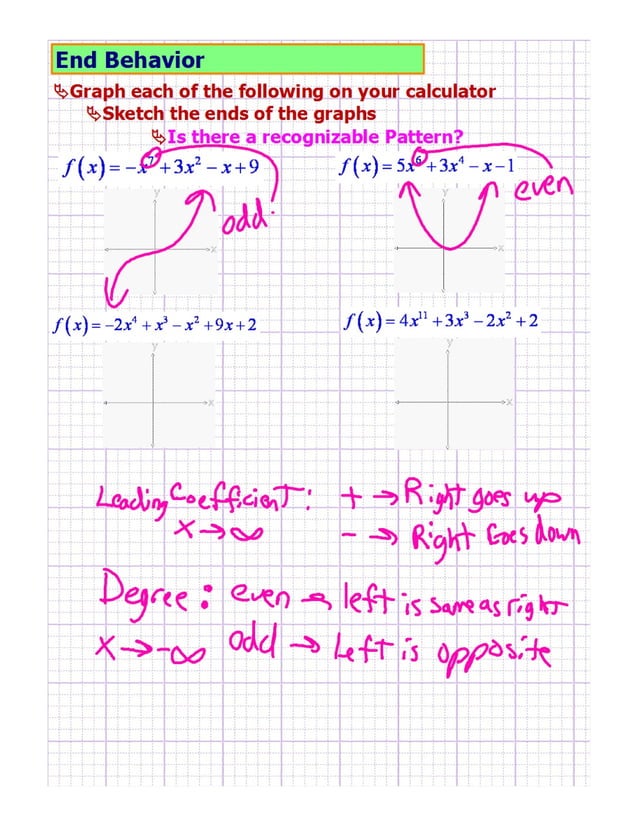 End Behavior
Graph each of the following on your calculator
Sketch the ends of the graphs
Is there a recognizable Pattern?
f(x) = −x⁷ + 3x² − x + 9
f(x) = 5x⁶ + 3x⁴ − x − 1
odd
even
y
x
y
x
f(x) = −2x⁴ + x³ − x² + 9x + 2
f(x) = 4x¹¹ + 3x³ − 2x² + 2
y
x
y
x
Leading Coefficient: + → Right goes up
x → ∞ − → Right Goes down
Degree: even → left is same as right
x → −∞ odd → Left is opposite